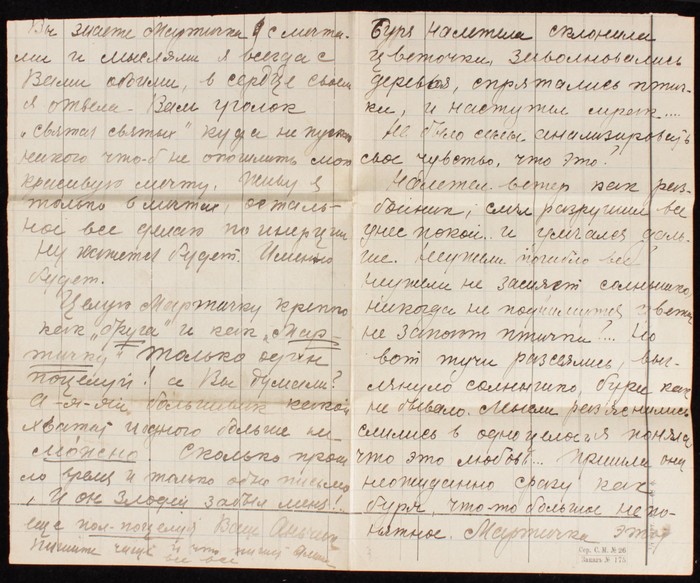 Вы знаете Мартичка! с мечта-
ми и мыслями я всегда с
Вами обоими, в сердце своем
я отвела Вам уголок
„святая святых" куда не пускаю
никого что-б не опошлить мою
красивую мечту. Живу я
только в мечтах, осталь-
ное все делаю по инерции
Ну кажется будет. Именно
будет.
Целую Мартичку крепко
как „друга" и как „Мар-
тичку" только один
поцелуй! а Вы думали?
А-я-яй, большевик какой
хватит и одного больше не-
можно! Сколько прош
ло время и только одно письмо
И он Злодей забыл меня!..
еще пол-поцелуя Ваша
Пишите чаще и что
Буря налетела склонила
цветочки, заволновались
деревья, спрятались птич-
ки, и наступил мрак....
Не было силы анализировать
свое чувство, что это?
Налетел ветер как раз-
бойник, смял разрушил все
унес покой.. и умчался даль-
ше. Неужели погибло все?
неужели не засияет солнышко
никогда не поднимутся цветы
не запоют птички?... Но
вот тучи рассеялись, выг-
лянуло солнышко, бури как
не бывало. Мысли раз'яснились
слились в одно целое я поняла
что это любовь... пришла она
неожиданно сразу как
буря, что-то больше непо-
нятное. Мартичка этой
Сер. С. М. № 26.
Заказ № 175